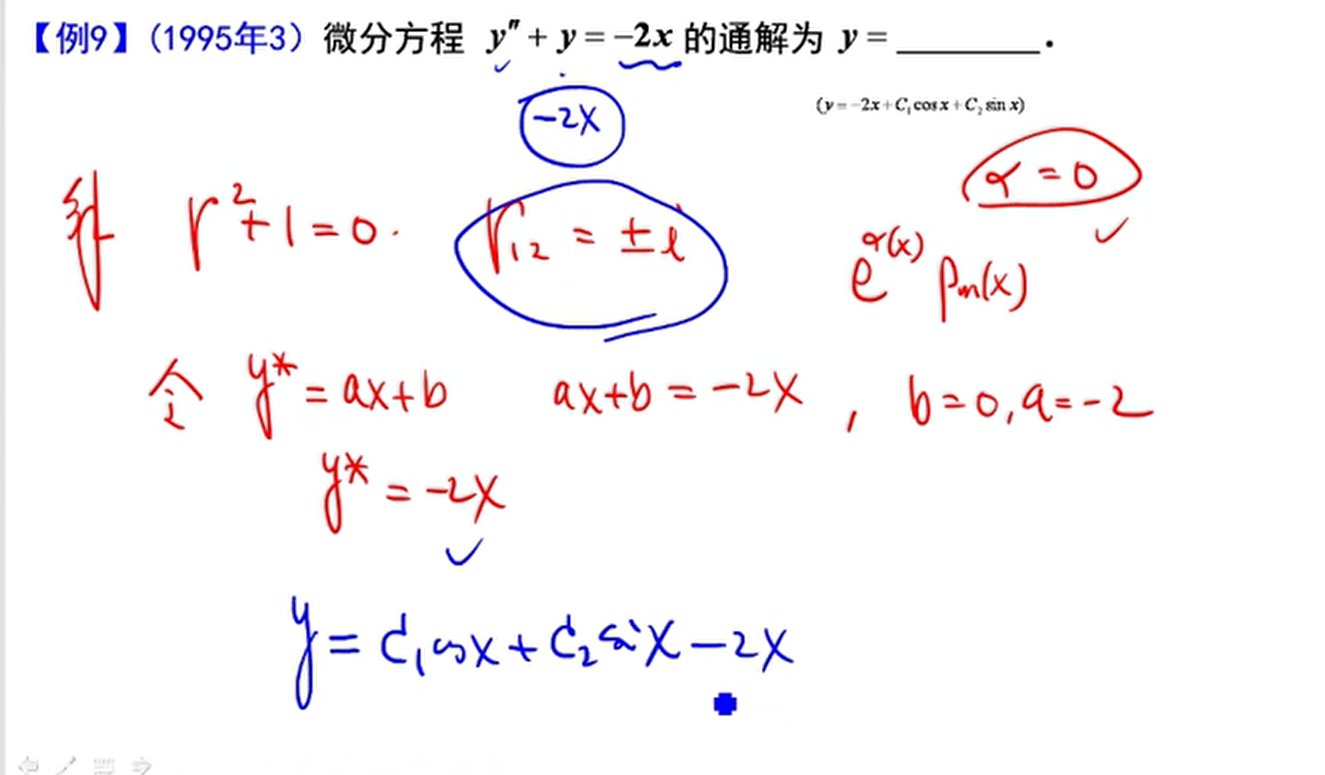 【例9】(1995年3) 微分方程 y″ + y = -2x 的通解为 y = ________.
(y = -2x + C₁cos x + C₂sin x)
-2x
α = 0
解 r² + 1 = 0. r₁₂ = ±i
e^α(x) Pm(x)
令 y* = ax+b ax+b = -2x , b=0, a=-2
y* = -2x
y = C₁cosx + C₂sinx - 2x